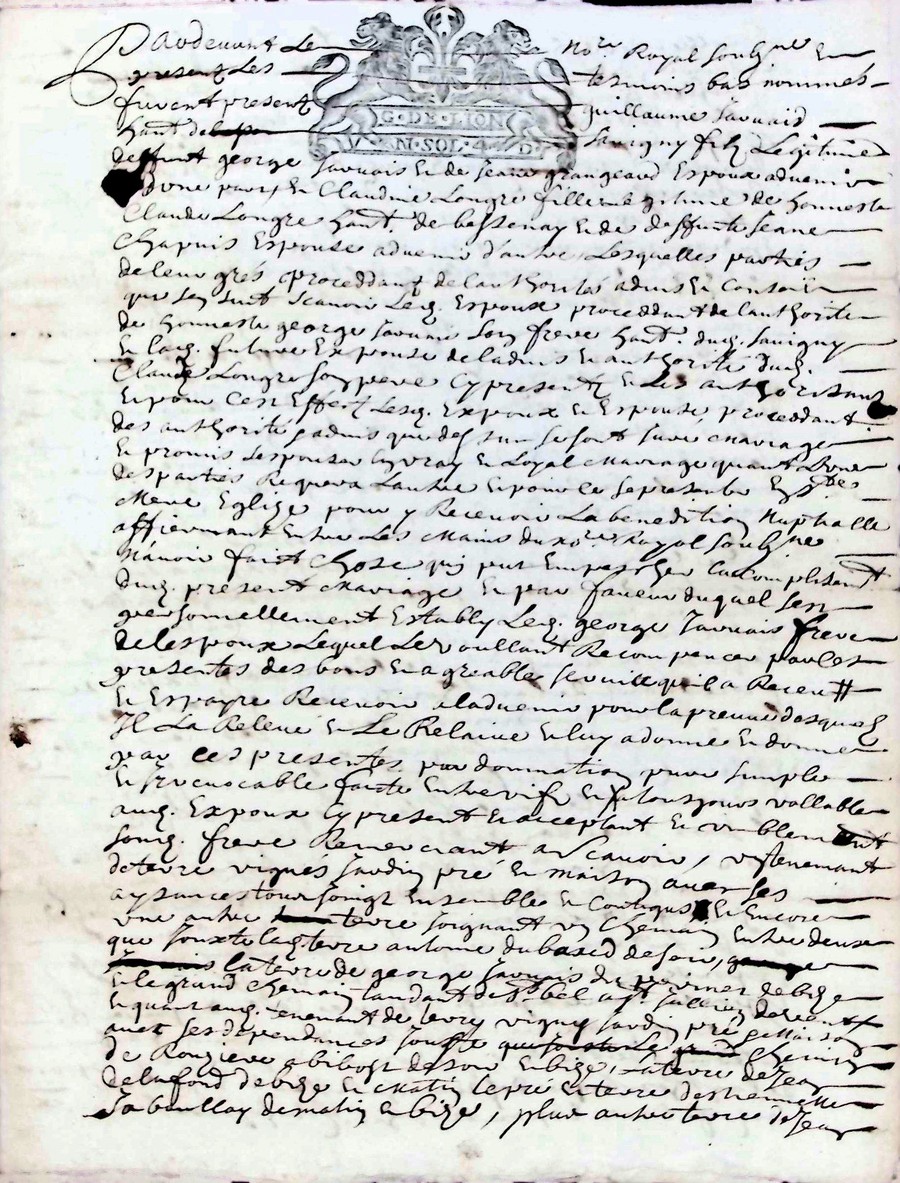 Pardevant Le no.re Royal soub.ne En
presentz Les tesmoins bas nommes
furent presentz guillaume Jarvais
G·DE·LION
N·SOL·4·D
hant de Savigny filz Legitime
deffunt george Jarvais Et de Jeane grangeaud Espoux advenir
dune part, Et Claudine Longre fille legitime de honneste
Claude Longre hant. de bessenay Et de deffunte Jeane
Chapuis Espouse advenir d'autre Lesquelles parties
de leur grés proceddant de lauthorités advis Et conseil
que sen suit scavoir Led. Espoux proceddant de lauthorite
de honneste george Jarvais son frere hant. dud. Savigny
Et lad. future Expouse de ladvis Et authorité dud.
Claude Longre son pere Cy present Et Les authorisant
Et pour Cest Effect Lesd. Expoux Et Espouse, proceddant
des authorités advis que dessus se sont faire Mariage
Et promis Lespouser En vray Et Loyal Mariage quant Lune
des parties Requera Lautre Et pour ce se presenter En S.te
Mere Eglise pour y Recevoir La benediction Nuptialle
affirmant Entre Les Mains du no.re Royal soub.ne
Navoir faict Chose qui peut Empescher Lacomplisem.t
dud. present Mariage Et par faveur duquel sest
personnellement Estably Led. george Jarvais frere
de lespoux Lequel Le voullant Recompencer par les
presentes des bons Et agreable service quil a Receu
Et Espere Recevoir a ladvenir pour la preuve desquelz
Il La Releve Et Le Relaive Et luy a donne Et donne
par ces presentes par donnation pure simple
Et irrevocable faicte Entre vifz Et a tousjours vallable
aud. Expoux Cy present Et acceptant Et humblement
sond. frere Remerciant a Scavoir, un tenement
de terre vignes Jardin pré Et maison avec ses
aysances tour joingt Ensemble Et Contigus Et Encore
une autre terre joignant un Chemin Entre deux
que Jouxte lad. terre antoine du de soir,
la terre de george Jarvais de bize
Et le grand Chemin tandant de S.t bel a S.t
tenement de terre vigne Jardin pré Et Maison
avec ses dependances Jouxte Chemin
de Ronziere a bibost de soir Et bize, la terre de Jean
de lafond de bize Et Matin le pré Et terre
de matin Et bize, plus autre terre de Jean